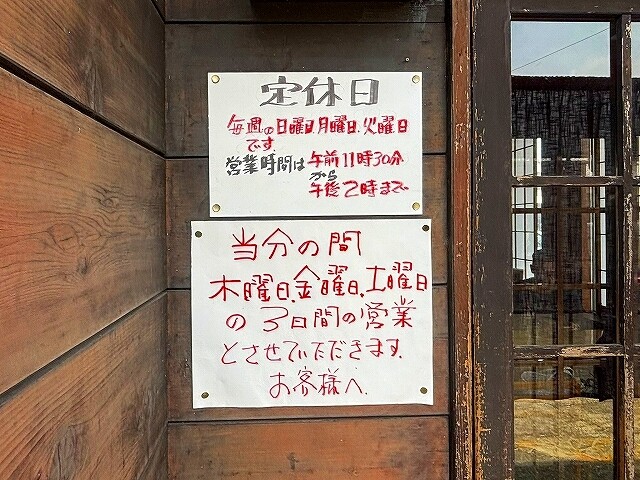 定休日
毎週の日曜日.月曜日.火曜日
です.
営業時間は 午前11時30分
から
午後2時まで
当分の間
木曜日.金曜日.土曜日
の3日間の営業
とさせていただきます.
お客様へ.